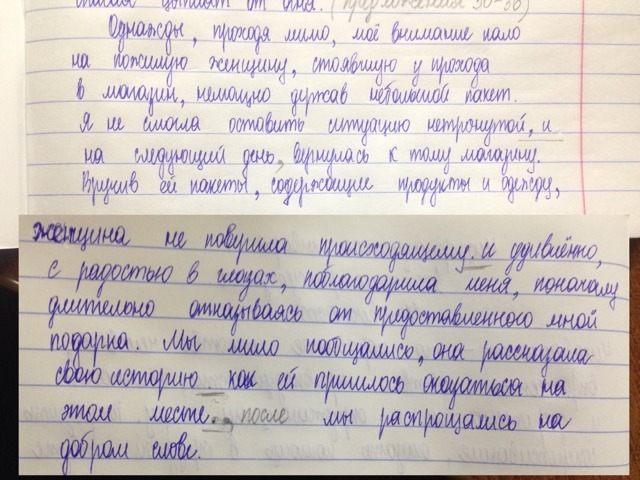 спасая цыплят от огня. (предложения 30-36)
Однажды, проходя мимо, моё внимание пало
на пожилую женщину, стоявшую у прохода
в магазин, немощно держав небольшой пакет.
Я не смогла оставить ситуацию нетронутой, и
на следующий день, вернулась к тому магазину.
Вручив ей пакеты, содержащие продукты и одежду,
женщина не поверила происходящему. и удивлённо,
с радостью в глазах, поблагодарила меня, поначалу
длительно отказываясь от предоставленного мной
подарка. Мы мило пообщались, она рассказала
свою историю как ей пришлось оказаться на
этом месте. после мы распрощались на
добром слове.